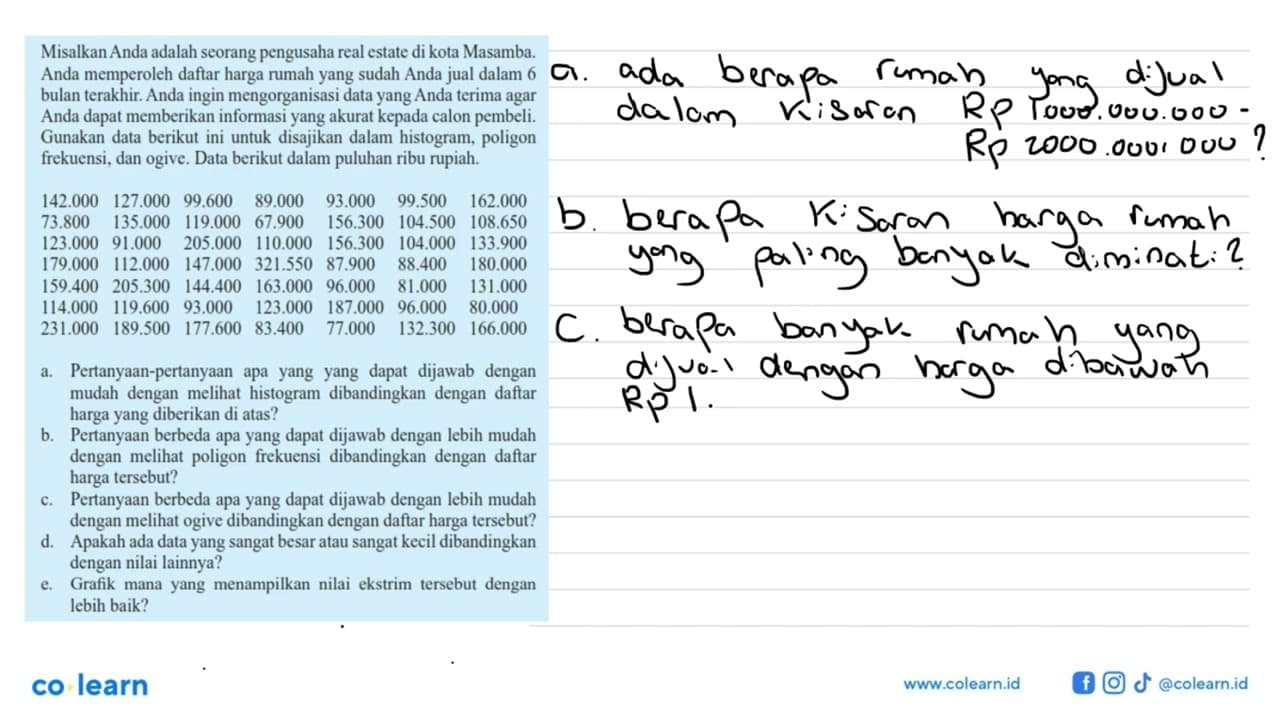 Misalkan Anda adalah seorang pengusaha real estate di kota Masamba.
Anda memperoleh daftar harga rumah yang sudah Anda jual dalam 6
bulan terakhir. Anda ingin mengorganisasi data yang Anda terima agar
Anda dapat memberikan informasi yang akurat kepada calon pembeli.
Gunakan data berikut ini untuk disajikan dalam histogram, poligon
frekuensi, dan ogive. Data berikut dalam puluhan ribu rupiah.
142.000 127.000 99.600 89.000 93.000 99.500 162.000
73.800 135.000 119.000 67.900 156.300 104.500 108.650
123.000 91.000 205.000 110.000 156.300 104.000 133.900
179.000 112.000 147.000 321.550 87.900 88.400 180.000
159.400 205.300 144.400 163.000 96.000 81.000 131.000
114.000 119.600 93.000 123.000 187.000 96.000 80.000
231.000 189.500 177.600 83.400 77.000 132.300 166.000
a. Pertanyaan-pertanyaan apa yang yang dapat dijawab dengan
mudah dengan melihat histogram dibandingkan dengan daftar
harga yang diberikan di atas?
b. Pertanyaan berbeda apa yang dapat dijawab dengan lebih mudah
dengan melihat poligon frekuensi dibandingkan dengan daftar
harga tersebut?
c. Pertanyaan berbeda apa yang dapat dijawab dengan lebih mudah
dengan melihat ogive dibandingkan dengan daftar harga tersebut?
d. Apakah ada data yang sangat besar atau sangat kecil dibandingkan
dengan nilai lainnya?
e. Grafik mana yang menampilkan nilai ekstrim tersebut dengan
lebih baik?
a. ada berapa rumah yang dijual
dalam kisaran Rp 1000.000.000 -
Rp 2000.000.000?
b. berapa kisaran harga rumah
yang paling banyak diminati?
c. berapa banyak rumah yang
dijual dengan harga dibawah
Rp 1.
co learn
www.colearn.id
@colearn.id